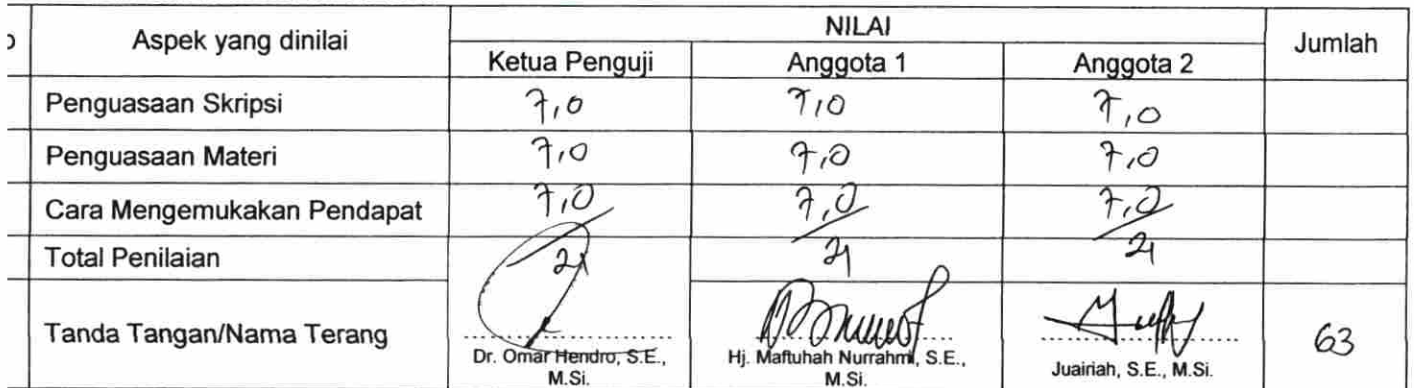 Aspek yang dinilai NILAI Jumlah
Ketua Penguji Anggota 1 Anggota 2
Penguasaan Skripsi 7,0 7,0 7,0
Penguasaan Materi 7,0 7,0 7,0
Cara Mengemukakan Pendapat 7,0 7,0 7,0
Total Penilaian 21 21 21
Tanda Tangan/Nama Terang 63
Dr. Omar Hendro, S.E., Hj. Maftuhah Nurrahmi, S.E., Juairiah, S.E., M.Si.
M.Si. M.Si.